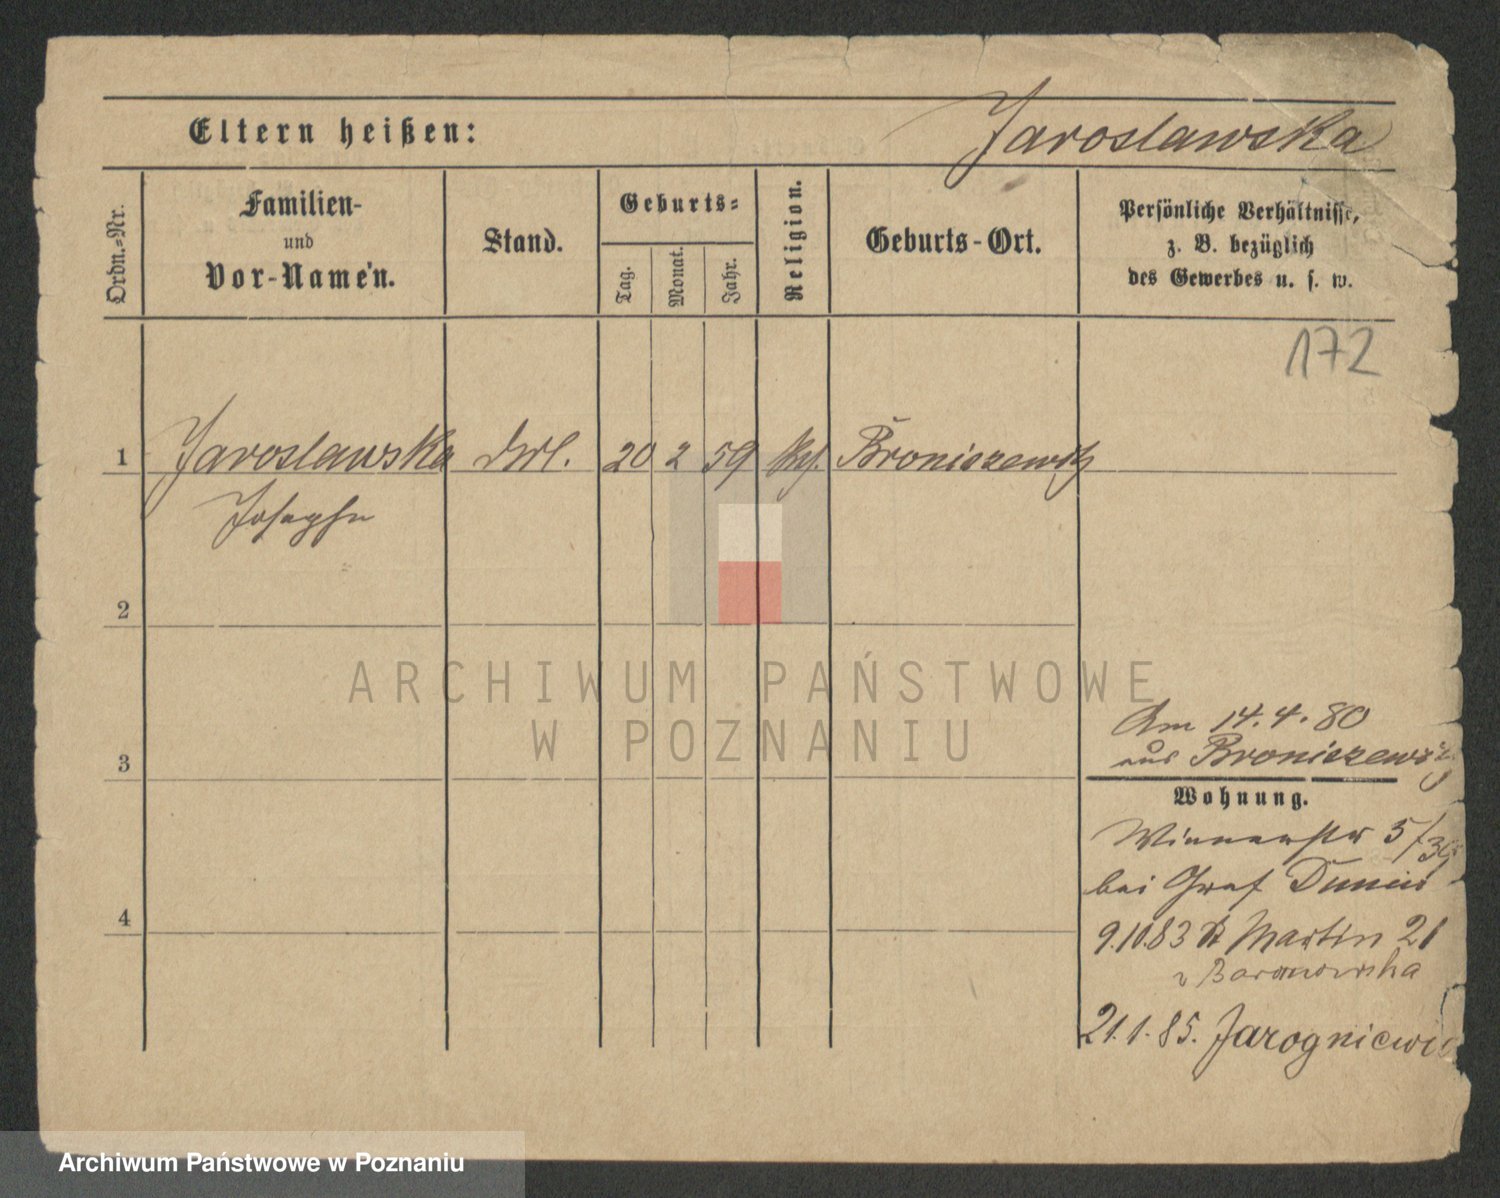 Eltern heißen:
Jaroslawska
Ordn.-Nr.
Familien-
und
Vor-Namen.
Stand.
Geburts-
Tag.
Monat.
Jahr.
Religion.
Geburts-Ort.
Persönliche Verhältnisse,
z. B. bezüglich
des Gewerbes u. s. w.
172
1 Jaroslawska 20 2 59 Broniszewitz
Josepha
2
3
4
Am 14. 4. 80
aus Broniszewitz
Wohnung.
5/39
bei Graf Dunin
9.10.83 St Martin 21
v Baranowska
21.1.85. Jarogniewic
ARCHIWUM PAŃSTWOWE
W POZNANIU
Archiwum Państwowe w Poznaniu